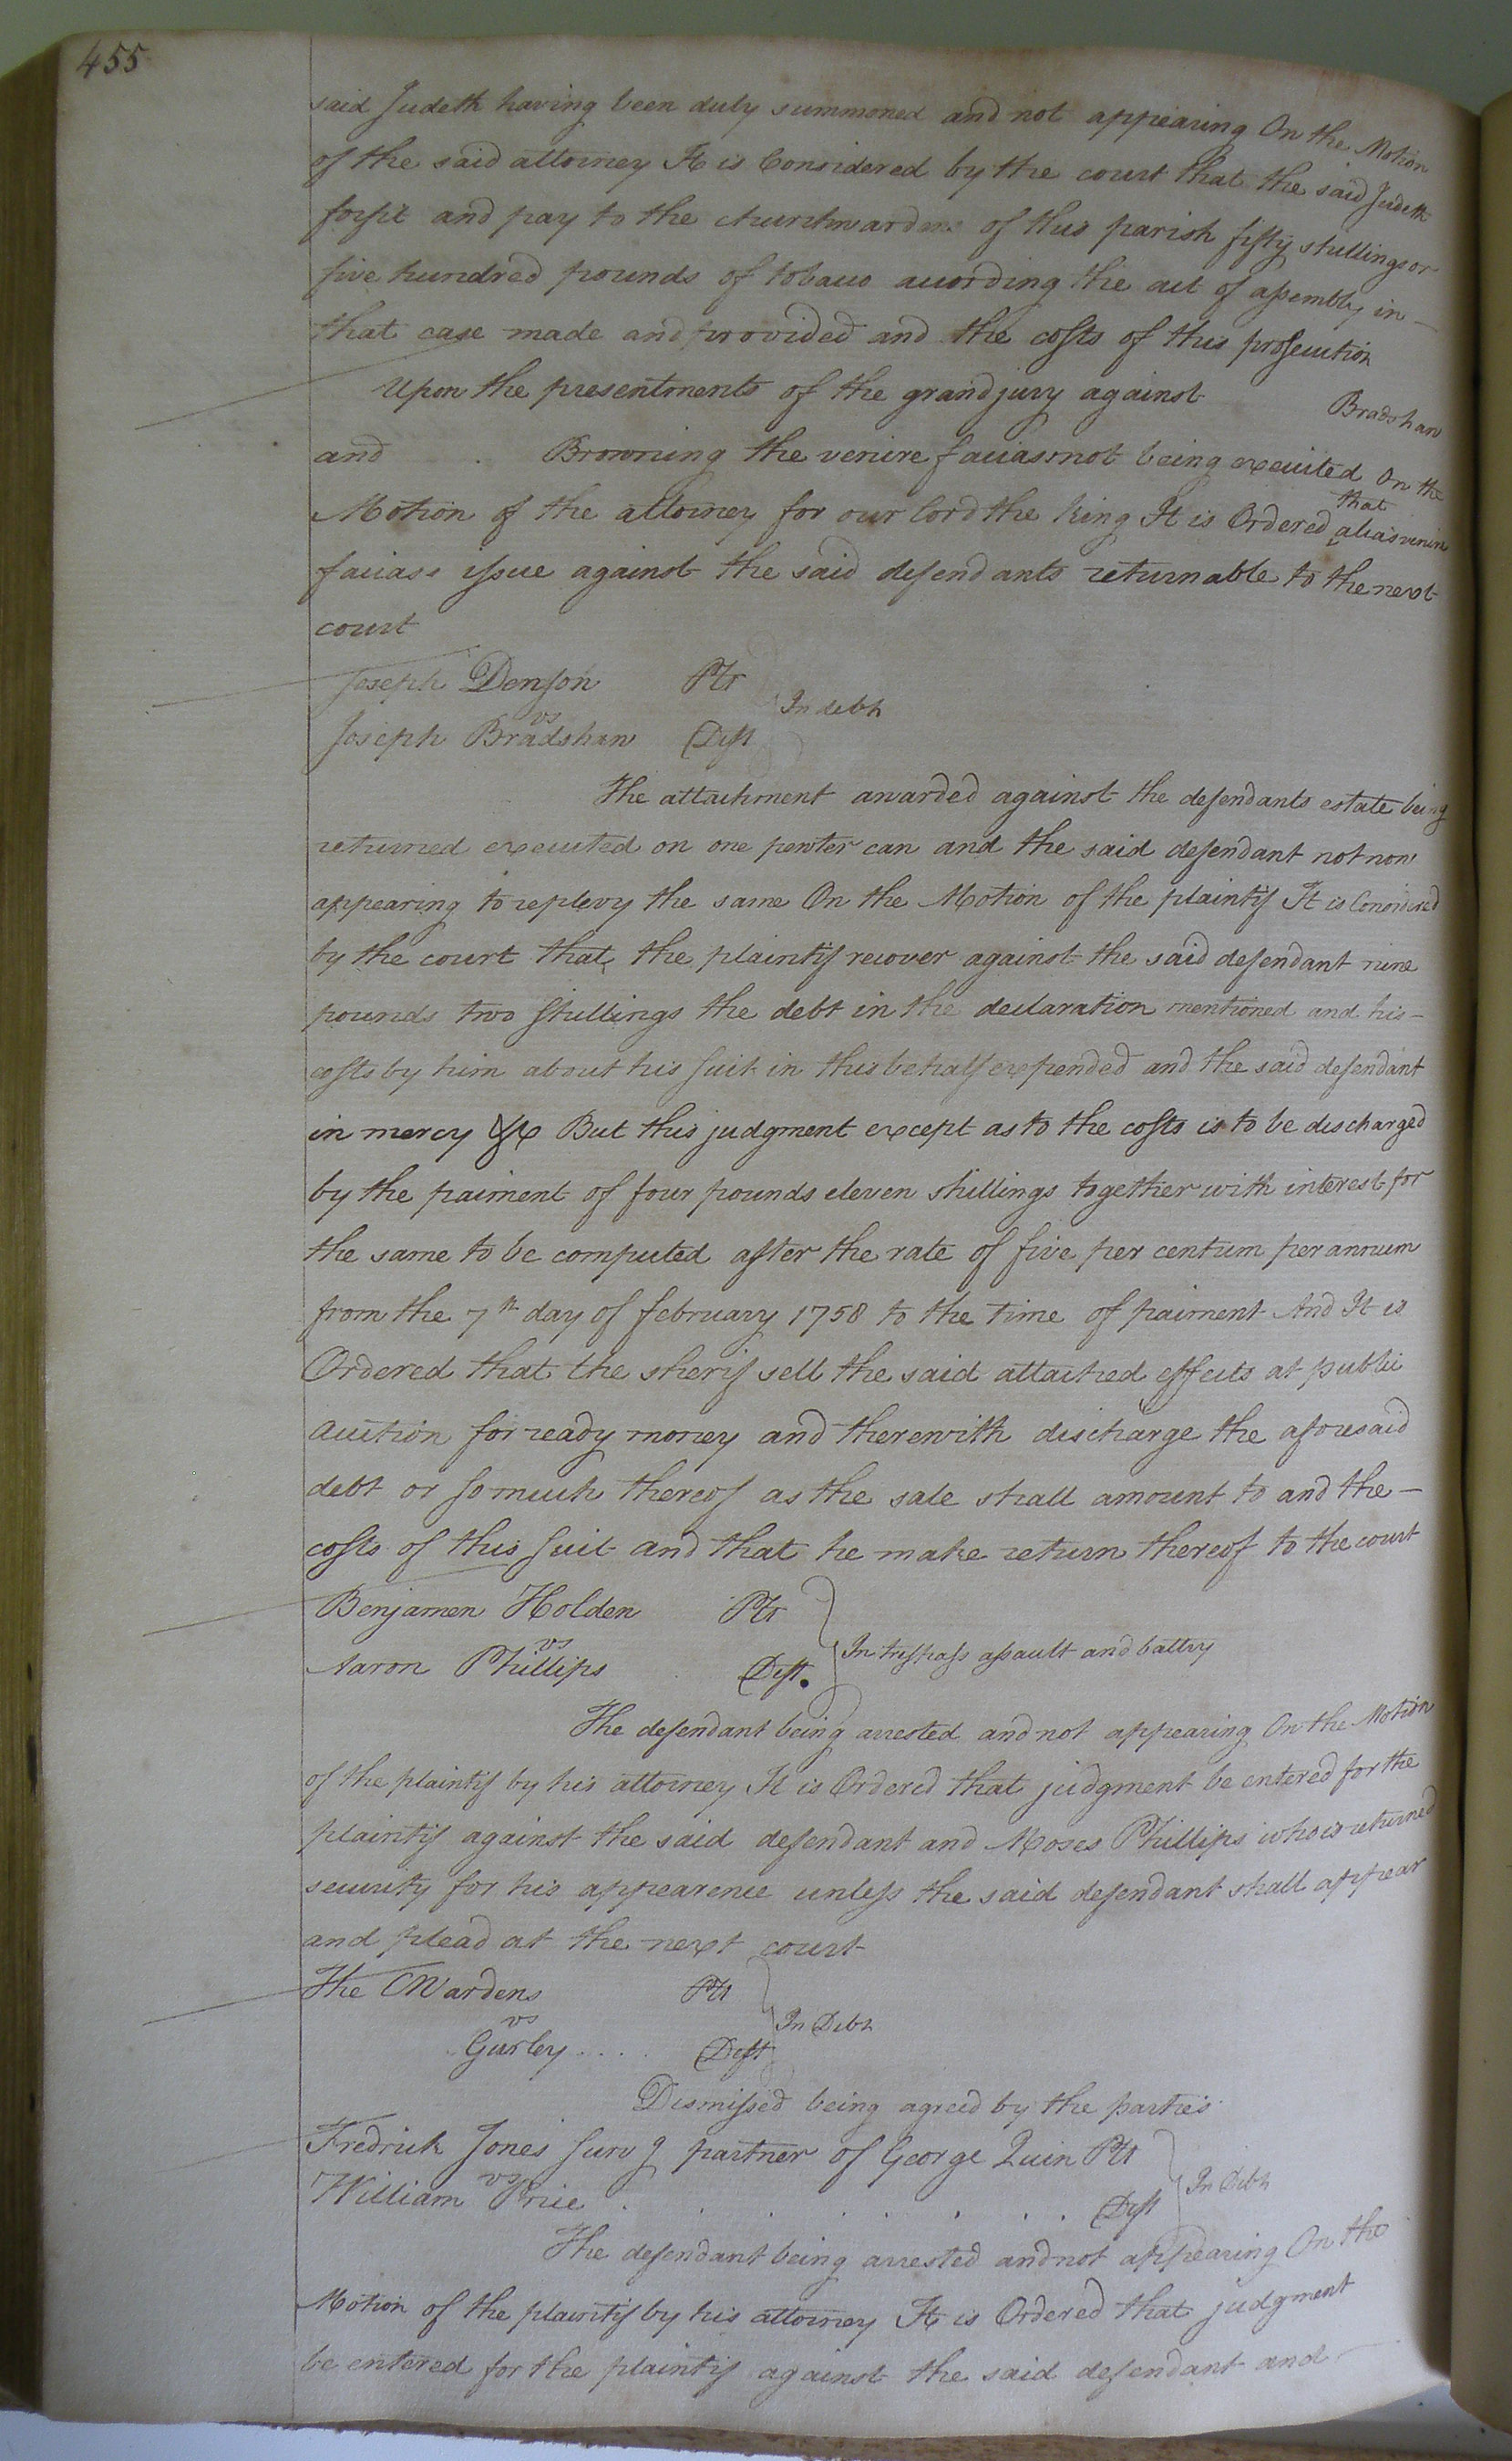 455
said Judeth having been duly summoned and not appearing On the Motion
of the said attorney It is Considered by the court that the said Judeth
forfit and pay to the churchwardens of this parish fifty shillings or
five hundred pounds of tobacco according the act of assembly in
that case made and provided and the costs of this prosecution
Upon the presentments of the grand jury against Bradshaw
and Browning the venire facias not being executed On the
Motion of the attorney for our lord the king It is Ordered that alias venire
facias issue against the said defendants returnable to the next
court
Joseph Denson Plt
vs In debt
Joseph Bradshaw Deft
The attachment awarded against the defendants estate being
returned executed on one pewter can and the said defendant not now
appearing to replevy the same On the Motion of the plaintif It is Considered
by the court that the plaintif recover against the said defendant nine
pounds two shillings the debt in the declaration mentioned and his
costs by him about his suit in this behalf expended and the said defendant
in mercy &c But this judgment except as to the costs is to be discharged
by the paiment of four pounds eleven shillings together with interest for
the same to be computed after the rate of five per centum per annum
from the 7th day of february 1758 to the time of paiment And It is
Ordered that the sherif sell the said attached effects at public
auction for ready money and therewith discharge the aforesaid
debt or so much thereof as the sale shall amount to and the
costs of this suit and that he make return thereof to the court
Benjamen Holden Plt
vs In trespass assault and battry
Aaron Phillips Deft.
The defendant being arrested and not appearing On the Motion
of the plaintif by his attorney It is Ordered that judgment be entered for the
plaintif against the said defendant and Moses Phillips who is returned
security for his appearence unless the said defendant shall appear
and plead at the next court
The CWardens Plt
vs In Debt
Gurley .... Deft
Dismissed being agreed by the parties
Fredrick Jones surv g partner of George Quin Plt
vs In Debt
William Price . . . . . . . Deft
The defendant being arrested and not appearing On the
Motion of the plaintif by his attorney It is Ordered that judgment
be entered for the plaintif against the said defendant and